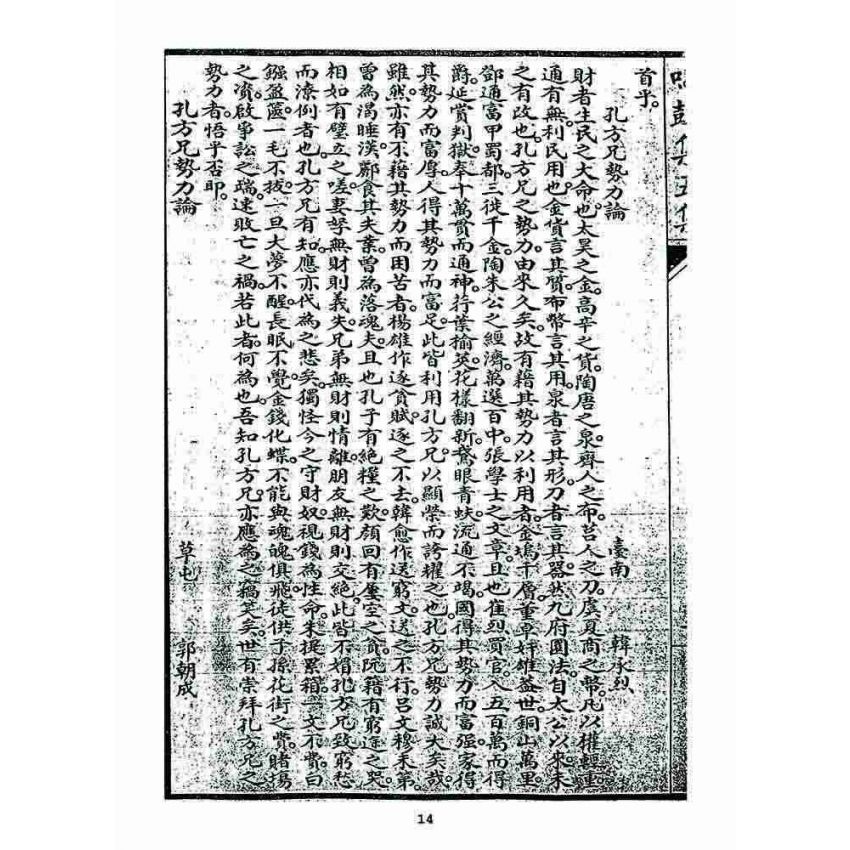 首乎。
孔方兄勢力論
臺南
韓承烈
財者生民之大命也。太昊之金。高辛之貨。陶唐之泉。齊人之布。莒人之刀。虞夏商之幣。凡以權輕重
通有無。利民用也。金貨言其質。布幣言其用。泉者言其形。刀者言其器。然九府圜法。自太公以來。未
之有改也。孔方兄之勢力。由來久矣。故有藉其勢力以利用者。金塢千層。董卓奸雄蓋世。銅山萬里。
鄧通富甲蜀都。三徙千金。陶朱公之經濟。萬選百中。張學士之文章。且也崔烈買官。入五百萬而得
爵。延賞判獄。奉十萬貫而通神。荇葉榆莢。花樣翻新。鵝眼青蚨。流通不竭。國得其勢力而富强。家得
其勢力而富厚。人得其勢力而富足。此皆利用孔方兄。以顯榮而誇耀之也。孔方兄勢力誠大矣哉
雖然。亦有不藉其勢力而困苦者。楊雄作逐貧賦。逐之不去。韓愈作送窮文。送之不行。呂文穆未第。
曾為渴睡漢。鄺食其失業。曾為落魂夫。且也孔子有絕糧之歎。顏回有屢空之貧。阮籍有窮途之哭。
相如有壁立之嗟。妻孥無財則義失。兄弟無財則情離。朋友無財則交絕。此皆不媚孔方兄。致窮愁
而潦倒者也。孔方兄有知。應亦代為之悲矣。獨怪今之守財奴。視錢為性命。朱提累箱。一文不費。白
鏹盈篋。一毛不拔。一旦大夢不醒。長眠不覺。金錢化蝶。不能與魂魄俱飛。徒供子孫花街之費。賭場
之資。啟爭訟之端。速敗亡之禍。若此者。何為也。吾知孔方兄。亦應為之竊笑矣。世有崇拜孔方兄之
勢力者。悟乎否耶。
孔方兄勢力論
草屯
郭朝成
14